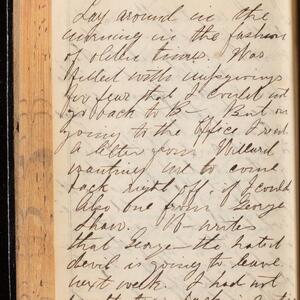 Lay around in the
morning in the fashion
of olden times. Was
filled with misgivings
for fear that I could not
go back to B— But on
going to the Office found
a letter from Willard
wanting me to come
back right off. if I could
Also one from George
Shaw. W— writes
that George the hated
devil is going to leave
next week. I had not